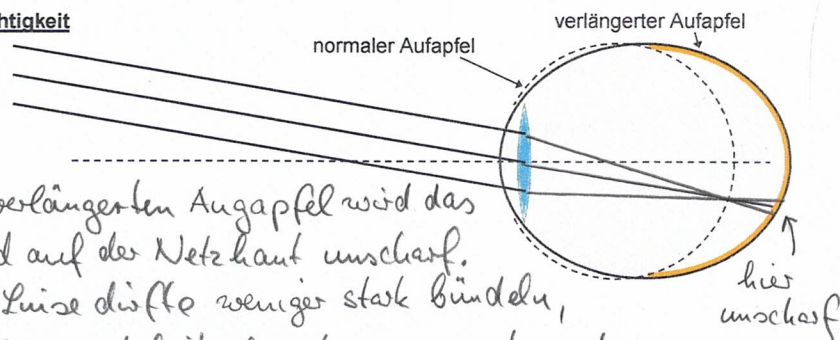 htigkeit
verlängerter Aufapfel
normaler Aufapfel
verlängerten Augapfel wird das
d auf der Netzhaut unscharf.
hier
Linse dürfte weniger stark bündeln,
unscharf